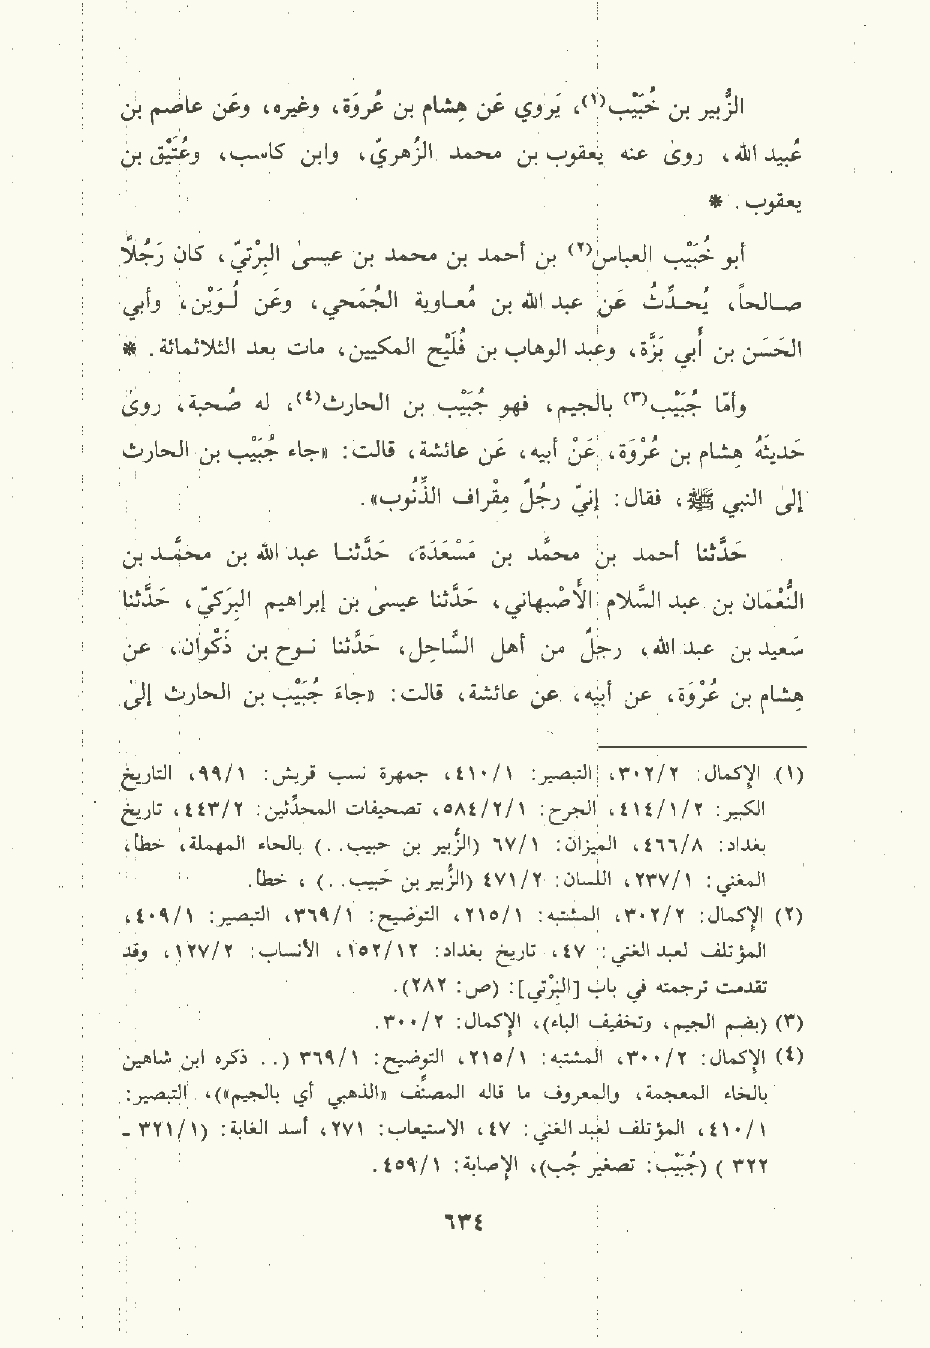 الزُّبير بن خُبَيْب(١)، يَروي عَن هِشام بن عُروَة، وغيره، وعَن عاصم بن
عُبيد الله، روىٰ عنه يعقوب بن محمد الزُهريّ، وابن كاسب، وعُتَيْق بن
يعقوب. *
أبو خُبَيْب العباس(٢) بن أحمد بن محمد بن عيسىٰ البِرْتيّ، كان رَجُلًا
صـالحاً، يُحـدِّثُ عَن عبد الله بن مُعـاوية الجُمَحي، وعَن لُـوَيْن، وأبي
الحَسَن بن أبي بَزَّة، وعبد الوهاب بن فُلَيْح المكيين، مات بعد الثلاثمائة. *
وأمّا جُبَيْب(٣) بالجيم، فهو جُبَيْب بن الحارث(٤)، له صُحبة، روىٰ
حَديثَهُ هِشام بن عُرْوَة، عَنْ أبيه، عَن عائشة، قالت: «جاء جُبَيْب بن الحارث
إلىٰ النبي ﷺ، فقال: إنيّ رجُلٌ مِقْراف الذُّنُوب».
حَدَّثنا أحمد بن محمَّد بن مَسْعَدَة، حَدَّثنـا عبد الله بن محمَّـد بن
النُّعْمَان بن عبد السَّلام الأَصْبهاني، حَدَّثنا عيسىٰ بن إبراهيم البِرَكيّ، حَدَّثنا
سَعيد بن عبد الله، رجلٌ من أهل السَّاحِل، حَدَّثنا نـوح بن ذَكْوان، عن
هِشام بن عُرْوَة، عن أبيه، عن عائشة، قالت: «جاءَ جُبَيْب بن الحارث إلىٰ
(١) الإكمال: ٣٠٢/٢، التبصير: ٤١٠/١، جمهرة نسب قريش: ٩٩/١، التاريخ
الكبير: ٤١٤/١/٢، الجرح: ٥٨٤/٢/١، تصحيفات المحدِّثين: ٤٤٣/٢، تاريخ
بغداد: ٤٦٦/٨، الميزان: ٦٧/١ (الزُّبير بن حبيب..) بالحاء المهملة، خطأ،
المغني: ٢٣٧/١، اللسان: ٤٧١/٢ (الزُّبير بن حَبيب..) ، خطأ.
(٢) الإكمال: ٣٠٢/٢، المشتبه: ٢١٥/١، التوضيح: ٣٦٩/١، التبصير: ٤٠٩/١،
المؤتلف لعبد الغني: ٤٧، تاريخ بغداد: ١٥٢/١٢، الأنساب: ١٢٧/٢، وقد
تقدمت ترجمته في باب [البِرْتي]: (ص: ٢٨٢).
(٣) (بضم الجيم، وتخفيف الباء)، الإكمال: ٣٠٠/٢.
(٤) الإكمال: ٣٠٠/٢، المشتبه: ٢١٥/١، التوضيح: ٣٦٩/١ (.. ذكره ابن شاهين
بالخاء المعجمة، والمعروف ما قاله المصنِّف «الذهبي أي بالجيم»)، التبصير:
٤١٠/١، المؤتلف لعبد الغني: ٤٧، الاستيعاب: ٢٧١، أسد الغابة: (٣٢١/١ ـ
٣٢٢ ) (جُبَيْب: تصغير جُب)، الإصابة: ٤٥٩/١.
٦٣٤